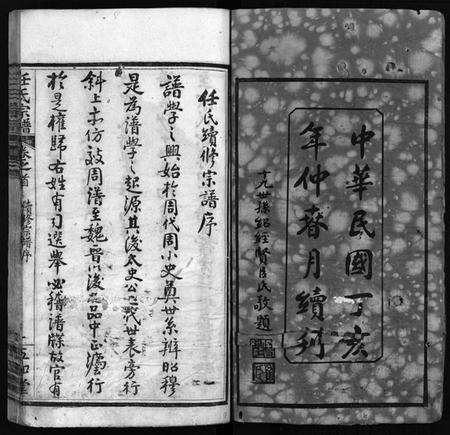 中華民國丁亥
年仲春月續刊
十九世孫紹經賢臣氏敬題
任氏續修宗譜序
譜學之興始於周代周小史奠世系辨昭穆
是為譜學之起源其後太史公之三代世表旁行
斜上亦仿效周譜至魏晉以後九品中正盛行
於是權歸右姓有司選舉必稽譜牒故官有
任氏宗譜 卷之首 續修宗譜序 一 五知堂